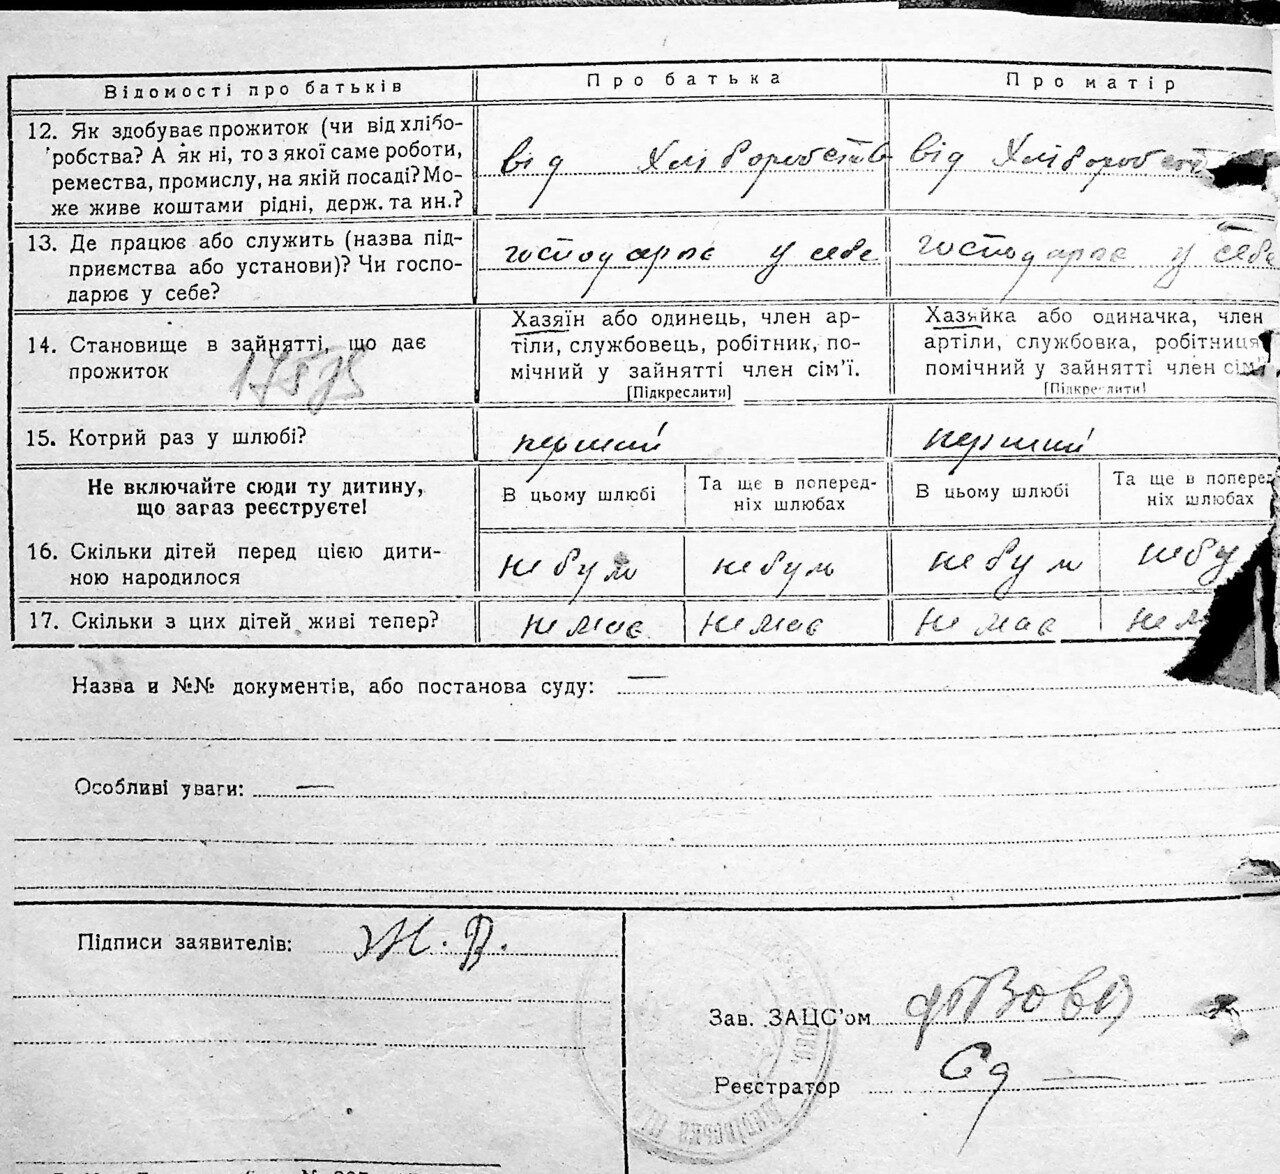 Відомості про батьків
Про батька
Про матір
12. Як здобуває прожиток (чи від хлібо-
робства? А як ні, то з якої саме роботи,
ремества, промислу, на якій посаді? Мо-
же живе коштами рідні, держ. та ин.?
від Хліборобства
від Хлібороб
13. Де працює або служить (назва під-
приємства або установи)? Чи госпо-
дарює у себе?
господарює у себе
господарює у себе
14. Становище в зайнятті, що дає
прожиток
Хазяїн або одинець, член ар-
тіли, службовець, робітник, по-
мічний у зайнятті член сім'ї.
[Підкреслити]
Хазяйка або одиначка, член
артіли, службовка, робітниця,
помічний у зайнятті член сім'ї
[Підкреслити]
15. Котрий раз у шлюбі?
перший
перший
Не включайте сюди ту дитину,
що загаз реєструєте!
В цьому шлюбі
Та ще в поперед-
ніх шлюбах
В цьому шлюбі
Та ще в поперед-
ніх шлюбах
16. Скільки дітей перед цією дити-
ною народилося
не було
не було
не було
не бу
17. Скільки з цих дітей живі тепер?
не має
не має
не має
не м
Назва и №№ документів, або постанова суду: —
Особливі уваги: —
Підписи заявителів:
Зав. ЗАЦС'ом
Реєстратор